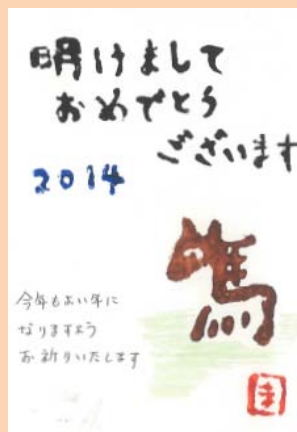 明けまして
おめでとう
ございます
2014
馬
今年もよい年に
なりますよう
お祈りいたします
ま